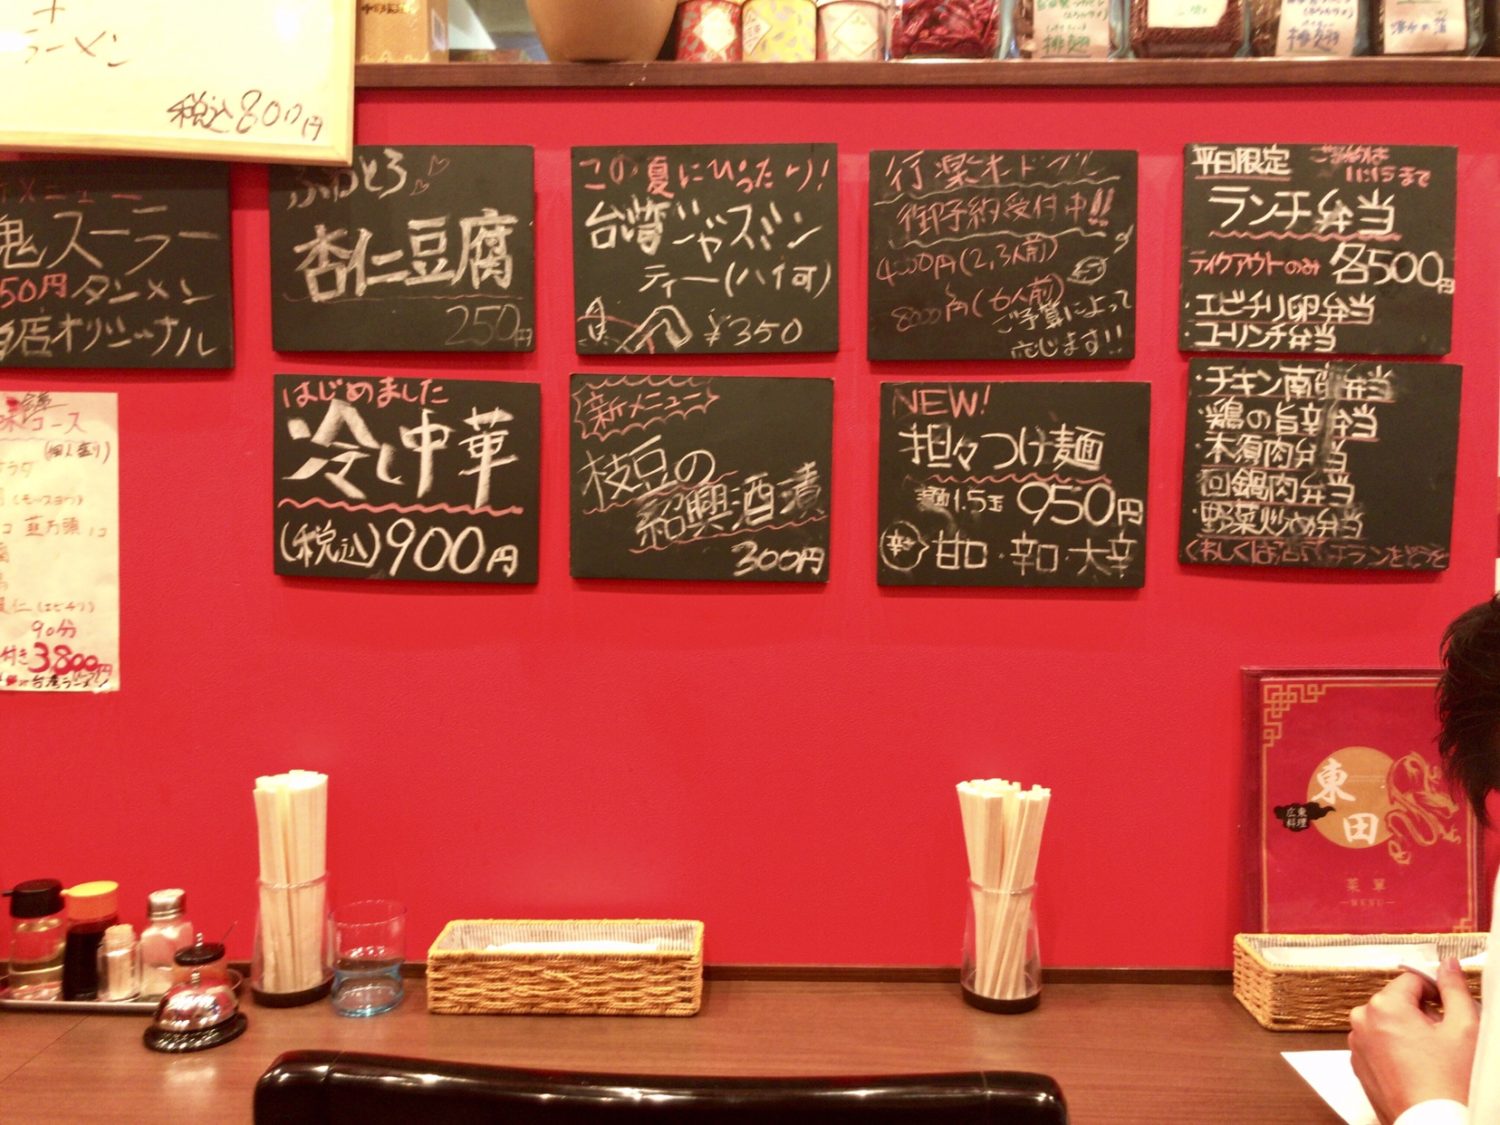 ラーメン
税込800円
メニュー
鬼スーラー
50円タンメン
店オリジナル
ふわとろ
杏仁豆腐
250円
この夏にぴったり!
台湾ジャスミン
ティー(ハイ可)
¥350
行楽オードブル
御予約受付中!!
4000円(2,3人前)
8000円(6人前)
ご予算によって
応じます!!
平日限定
ご予約は
11:15まで
ランチ弁当
テイクアウトのみ 各500円
・エビチリ卵弁当
・ユーリンチ弁当
はじめました
冷し中華
(税込)900円
新メニュー
枝豆の
紹興酒漬
300円
NEW!
担々つけ麺
麺1.5玉 950円
辛さ 甘口・辛口・大辛
・チキン南蛮弁当
・鶏の旨辛弁当
・木須肉弁当
・回鍋肉弁当
・野菜炒め弁当
コース
(個人盛り)
90分
付き3800円
台湾ラーメン
排翅
東田
広東料理
菜單
MENU